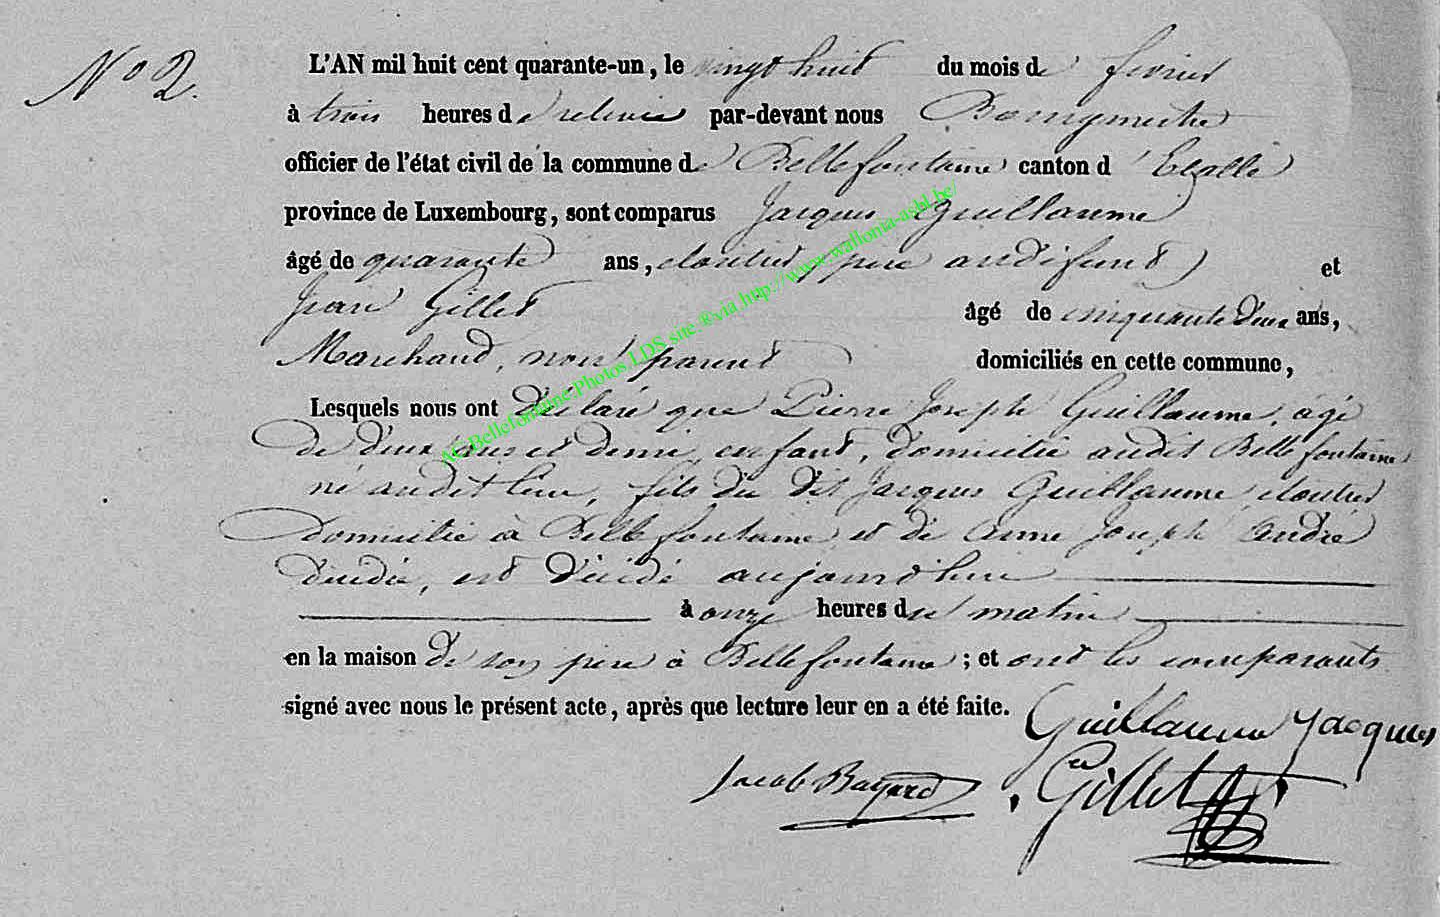 No 2.
L'AN mil huit cent quarante-un, le vingt huit du mois de fevrier
à trois heures de relevée par-devant nous Bourgmestre
officier de l'état civil de la commune de Bellefontaine canton d'Etalle
province de Luxembourg, sont comparus Jacques Guillaume
âgé de quarante ans, cloutier (père au défunt) et
Jean Gillet âgé de cinquante deux ans,
Marchand, non parent domiciliés en cette commune,
Lesquels nous ont déclaré que Pierre Joseph Guillaume, âgé
de deux ans et demi, enfant, domicilié audit Bellefontaine
né audit lieu, fils du dit Jacques Guillaume cloutier
domicilié à Bellefontaine et de Anne Joseph André
décédée, est décédé aujourd'hui
à onze heures du matin
en la maison de son père à Bellefontaine ; et ont les comparants
signé avec nous le présent acte, après que lecture leur en a été faite.
Guillaume Jacques
Jacob Bayard Gillet
AC Bellefontaine.Photos LDS site ®via http://www.wallonia-asbl.be/